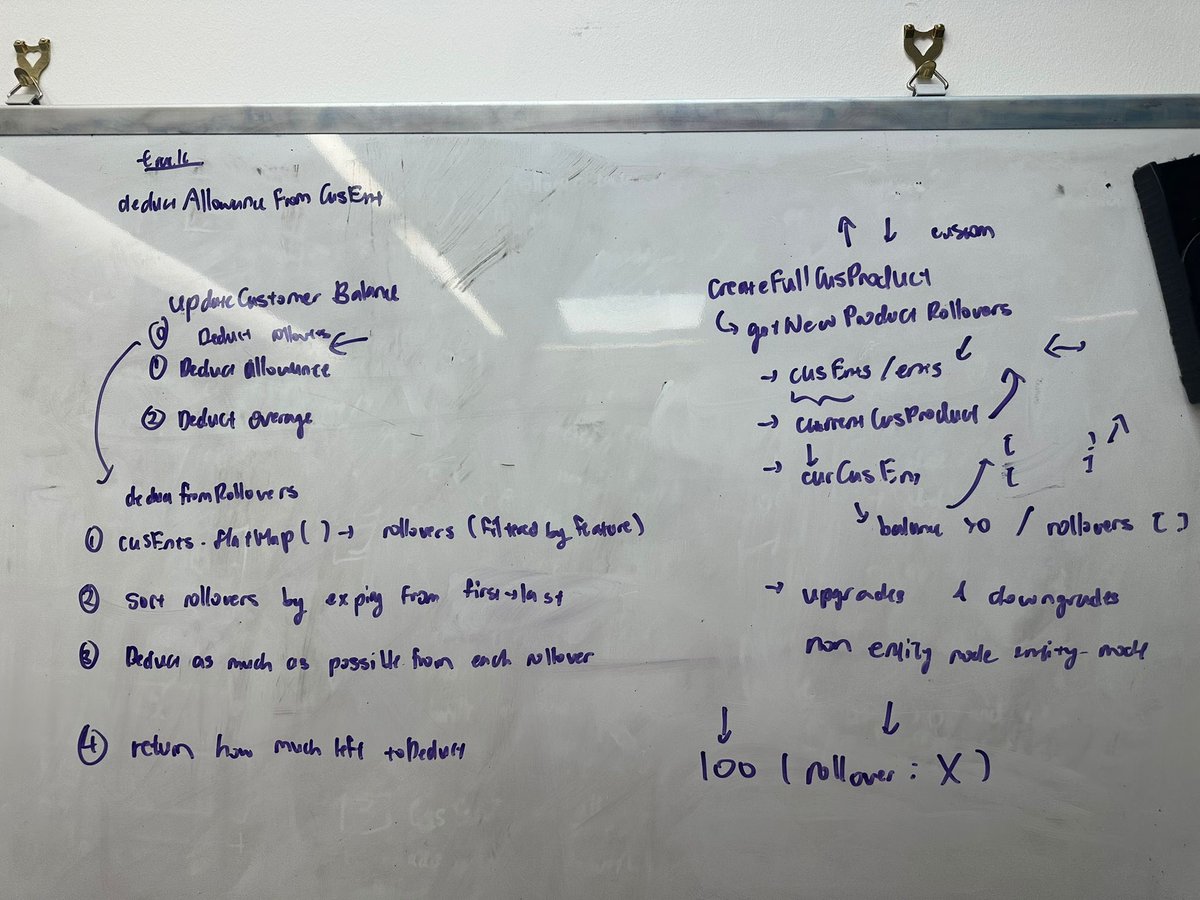 deduct Allowance From CusEnt
updateCustomer Balance
⓪ Deduct rollovers ←
① Deduct allowance
② Deduct overage
deduct fromRollovers
① cusEnts.flatMap() → rollovers (filtered by feature)
② sort rollovers by expiry from first→last
③ Deduct as much as possible from each rollover
④ return how much left toDeduct
↑ ↓ custom
createFullCusProduct
↳ getNewProductRollovers
→ cusEnts / ents ↔
→ currentCusProduct
→ curCusEnt
↳ balance >0 / rollovers [ ]
→ upgrades & downgrades
non entity mode entity-mode
100 (rollover: X)